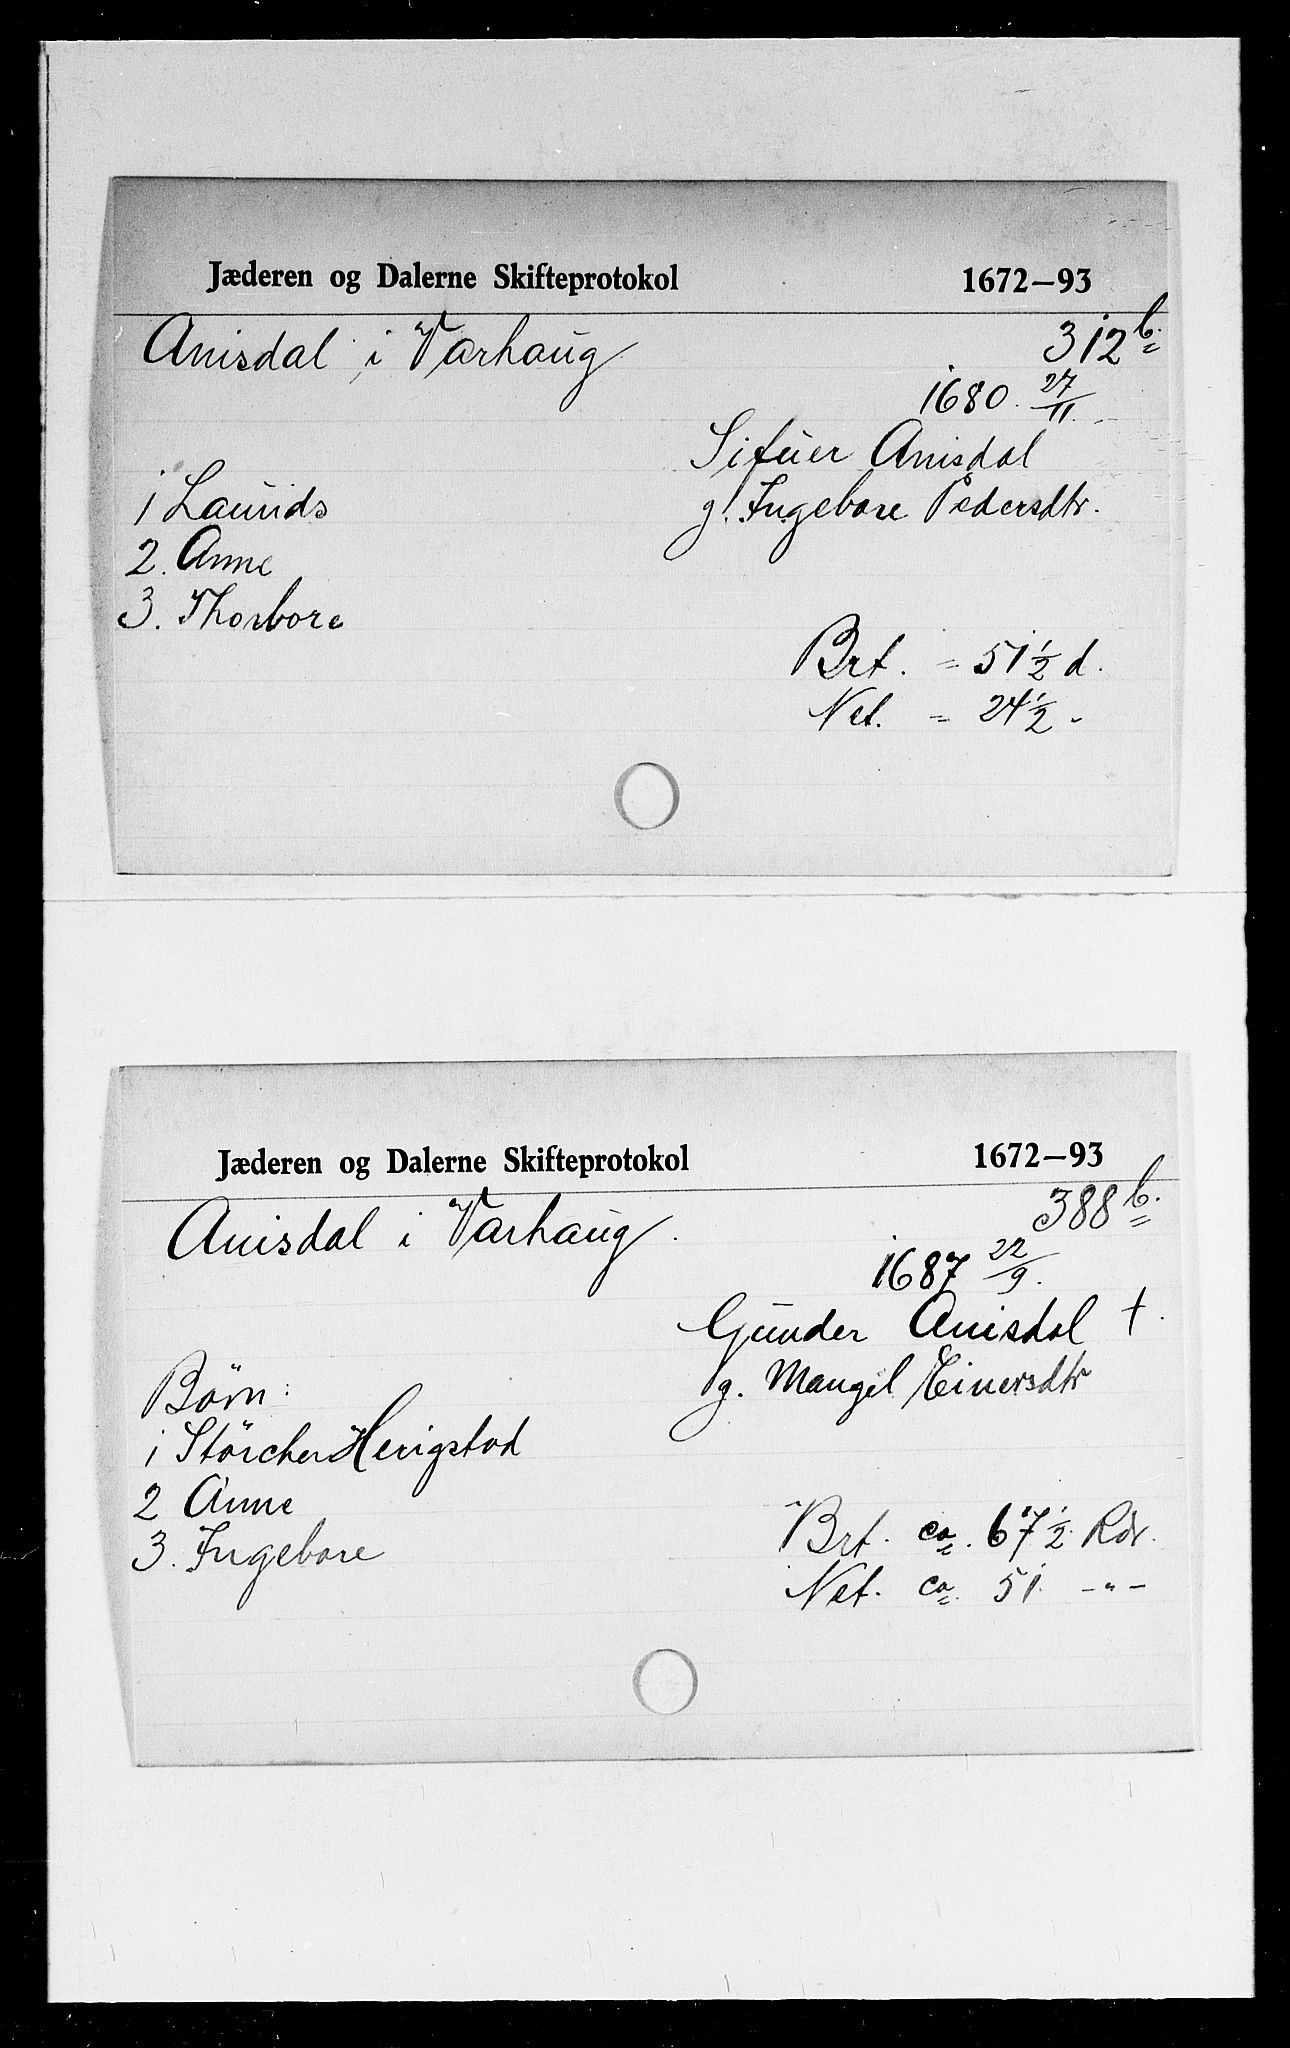 Jæderen og Dalerne Skifteprotokol 1672–93
Anisdal i Varhaug 312 b.
1680. 27/11.
Sifuer Anisdal
g. Ingebore Pedersdtr.
1 Launids
2. Anne
3. Thorbore
Brt. = 51 1/2 d.
Net. = 24 1/2 "
Jæderen og Dalerne Skifteprotokol 1672–93
Anisdal i Varhaug. 388 b.
1687 22/9.
Gunder Anisdal †.
g. Mangel Einersdtr
Børn:
1 Störcher Herigstad
2 Anne
3. Ingebore
Brt. ca. 67 1/2 Rdr.
Net. ca. 51. -"-